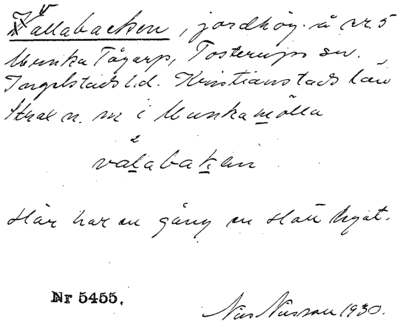 Vallabacken, jordhög å nr 5
Munka Tågarp, Tosterups sn.
Ingelstads hd. Kristianstads län
Strax n. om i Munkamölla
valabakan
Här har en gång en slott legat.
Nr 5455.
Nils Nilsson 1930.